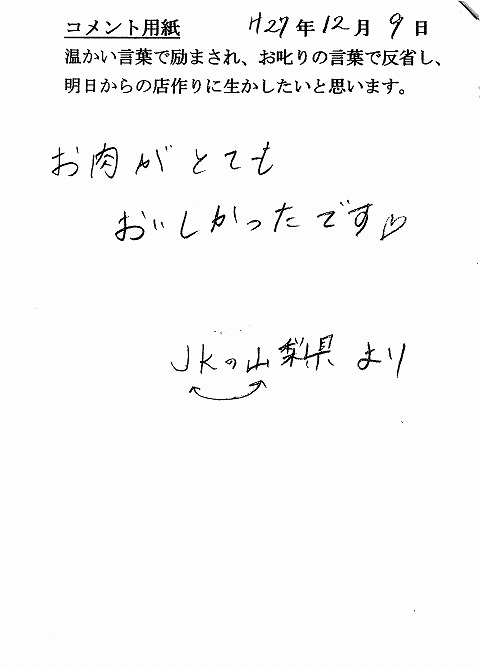 コメント用紙 H27年12月9日
温かい言葉で励まされ、お叱りの言葉で反省し、
明日からの店作りに生かしたいと思います。
お肉がとても
おいしかったです♡
JKの山梨県より